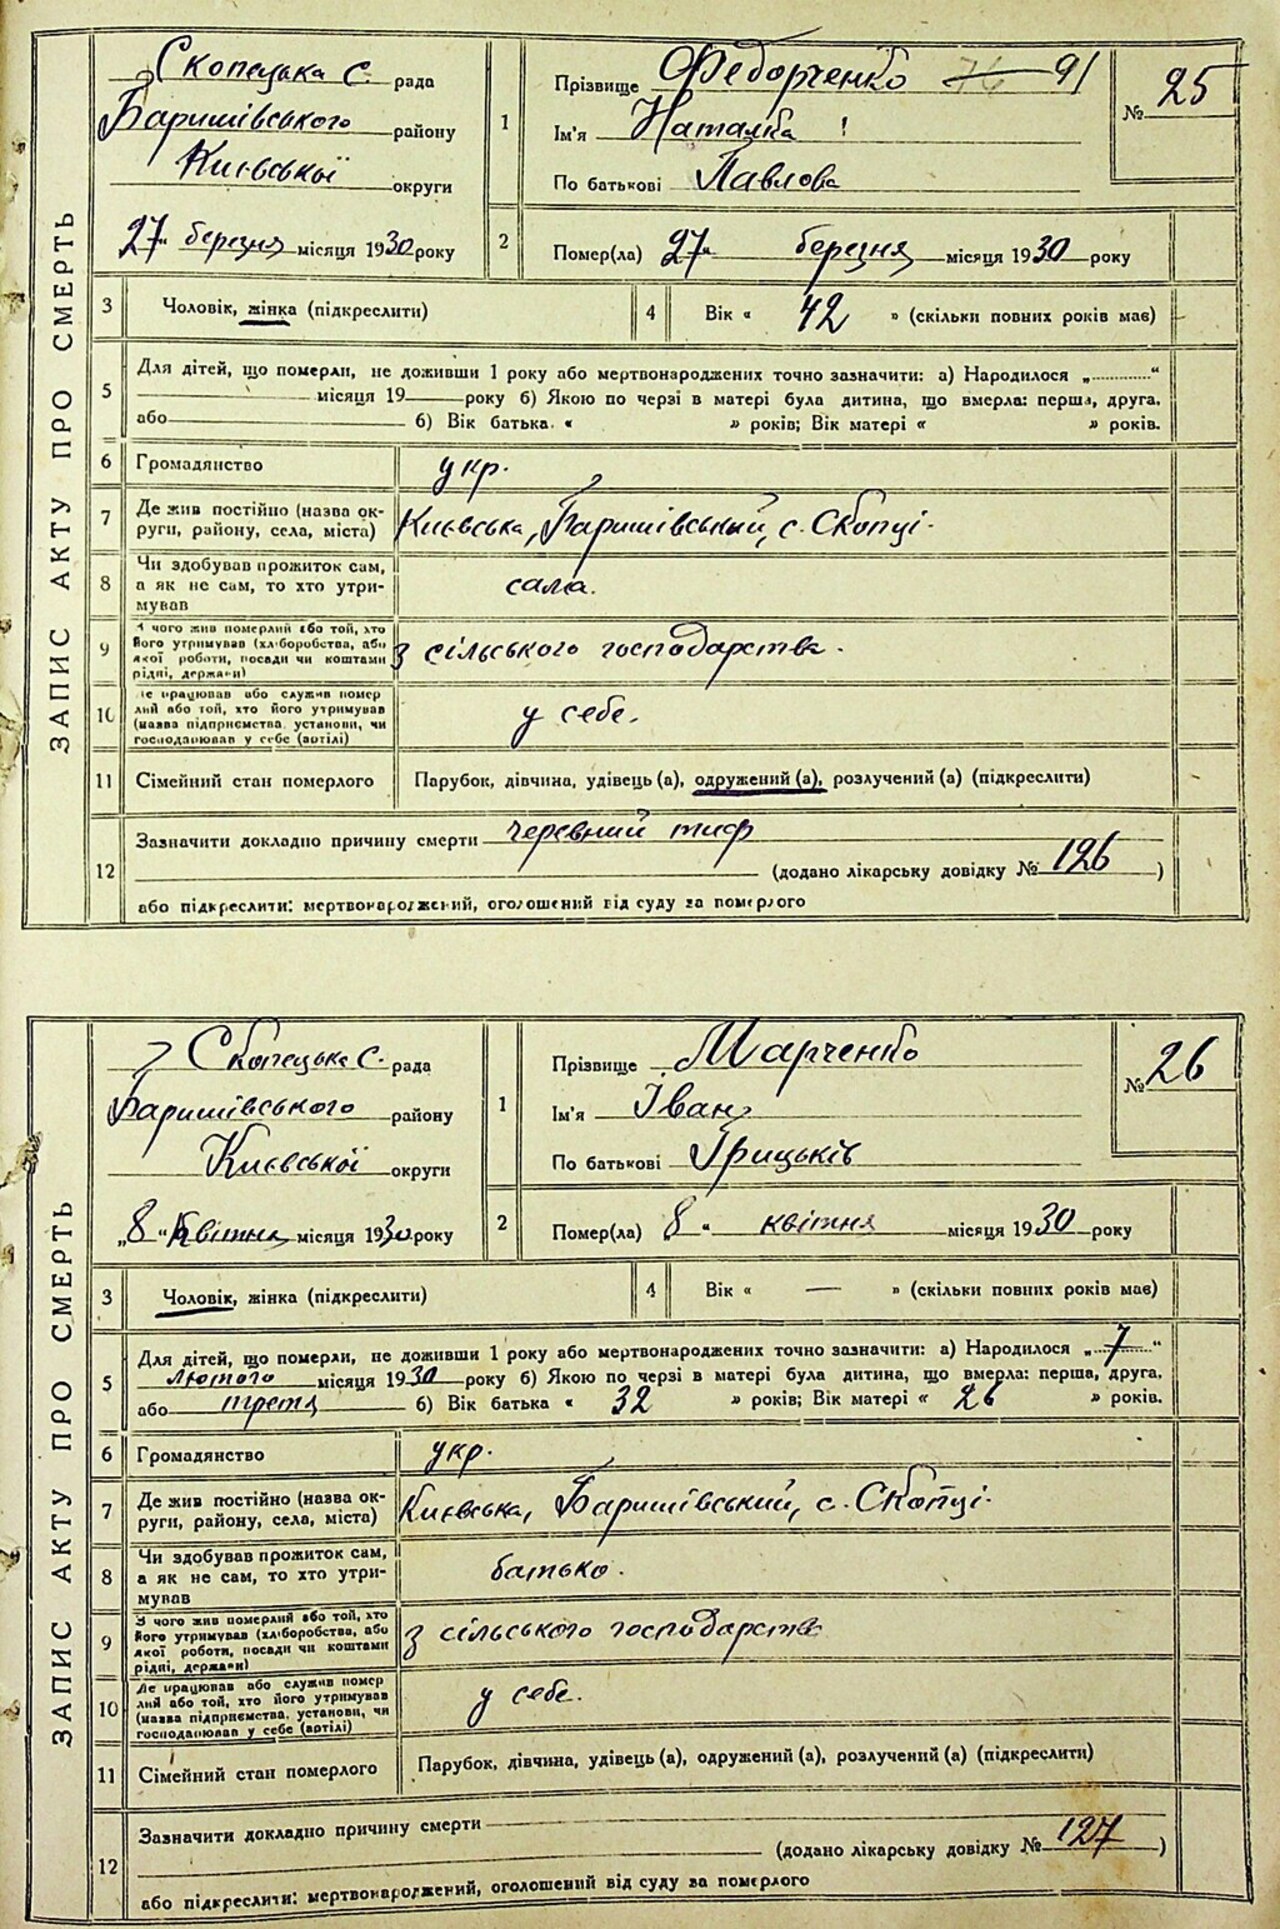 ЗАПИС АКТУ ПРО СМЕРТЬ
Скопецька С. рада
Баришівського району
Києвської округи
27" березня місяця 1930 року
1 Прізвище Федорченко 76 91
Ім'я Наталка !
По батькові Павлова
№ 25
2 Помер(ла) 27" березня місяця 1930 року
3 Чоловік, жінка (підкреслити)
4 Вік « 42 » (скільки повних років має)
5 Для дітей, що померли, не доживши 1 року або мертвонароджених точно зазначити: а) Народилося „ “
місяця 19 року б) Якою по черзі в матері була дитина, що вмерла: перша, друга,
або б) Вік батька « » років; Вік матері « » років.
6 Громадянство укр.
7 Де жив постійно (назва ок-
руги, району, села, міста) Києвська, Баришівський, с. Скопці.
8 Чи здобував прожиток сам,
а як не сам, то хто утри-
мував сама.
9 З чого жив померлий або той, хто
його утримував (хліборобства, або
якої роботи, посади чи коштами
рідні, держави) З сільського господарства.
10 Де працював або служив помер
лий або той, хто його утримував
(назва підприємства, установи, чи
господарював у себе (артілі) у себе.
11 Сімейний стан померлого Парубок, дівчина, удівець (а), одружений (а), розлучений (а) (підкреслити)
12 Зазначити докладно причину смерти черевний тиф
(додано лікарську довідку № 126 )
або підкреслити: мертвонароджений, оголошений від суду за померлого
ЗАПИС АКТУ ПРО СМЕРТЬ
Скопецька С. рада
Баришівського району
Києвської округи
„8" Квітня місяця 1930 року
1 Прізвище Марченко
Ім'я Іван
По батькові Грицьків
№ 26
2 Помер(ла) „8" квітня місяця 1930 року
3 Чоловік, жінка (підкреслити)
4 Вік « — » (скільки повних років має)
5 Для дітей, що померли, не доживши 1 року або мертвонароджених точно зазначити: а) Народилося „ 7 “
лютого місяця 1930 року б) Якою по черзі в матері була дитина, що вмерла: перша, друга,
або третя б) Вік батька « 32 » років; Вік матері « 26 » років.
6 Громадянство укр.
7 Де жив постійно (назва ок-
руги, району, села, міста) Києвська, Баришівський, с. Скопці.
8 Чи здобував прожиток сам,
а як не сам, то хто утри-
мував батько.
9 З чого жив померлий або той, хто
його утримував (хліборобства, або
якої роботи, посади чи коштами
рідні, держави) З сільського господарства
10 Де працював або служив помер
лий або той, хто його утримував
(назва підприємства, установи, чи
господарював у себе (артілі) у себе.
11 Сімейний стан померлого Парубок, дівчина, удівець (а), одружений (а), розлучений (а) (підкреслити)
12 Зазначити докладно причину смерти
(додано лікарську довідку № 127 )
або підкреслити: мертвонароджений, оголошений від суду за померлого